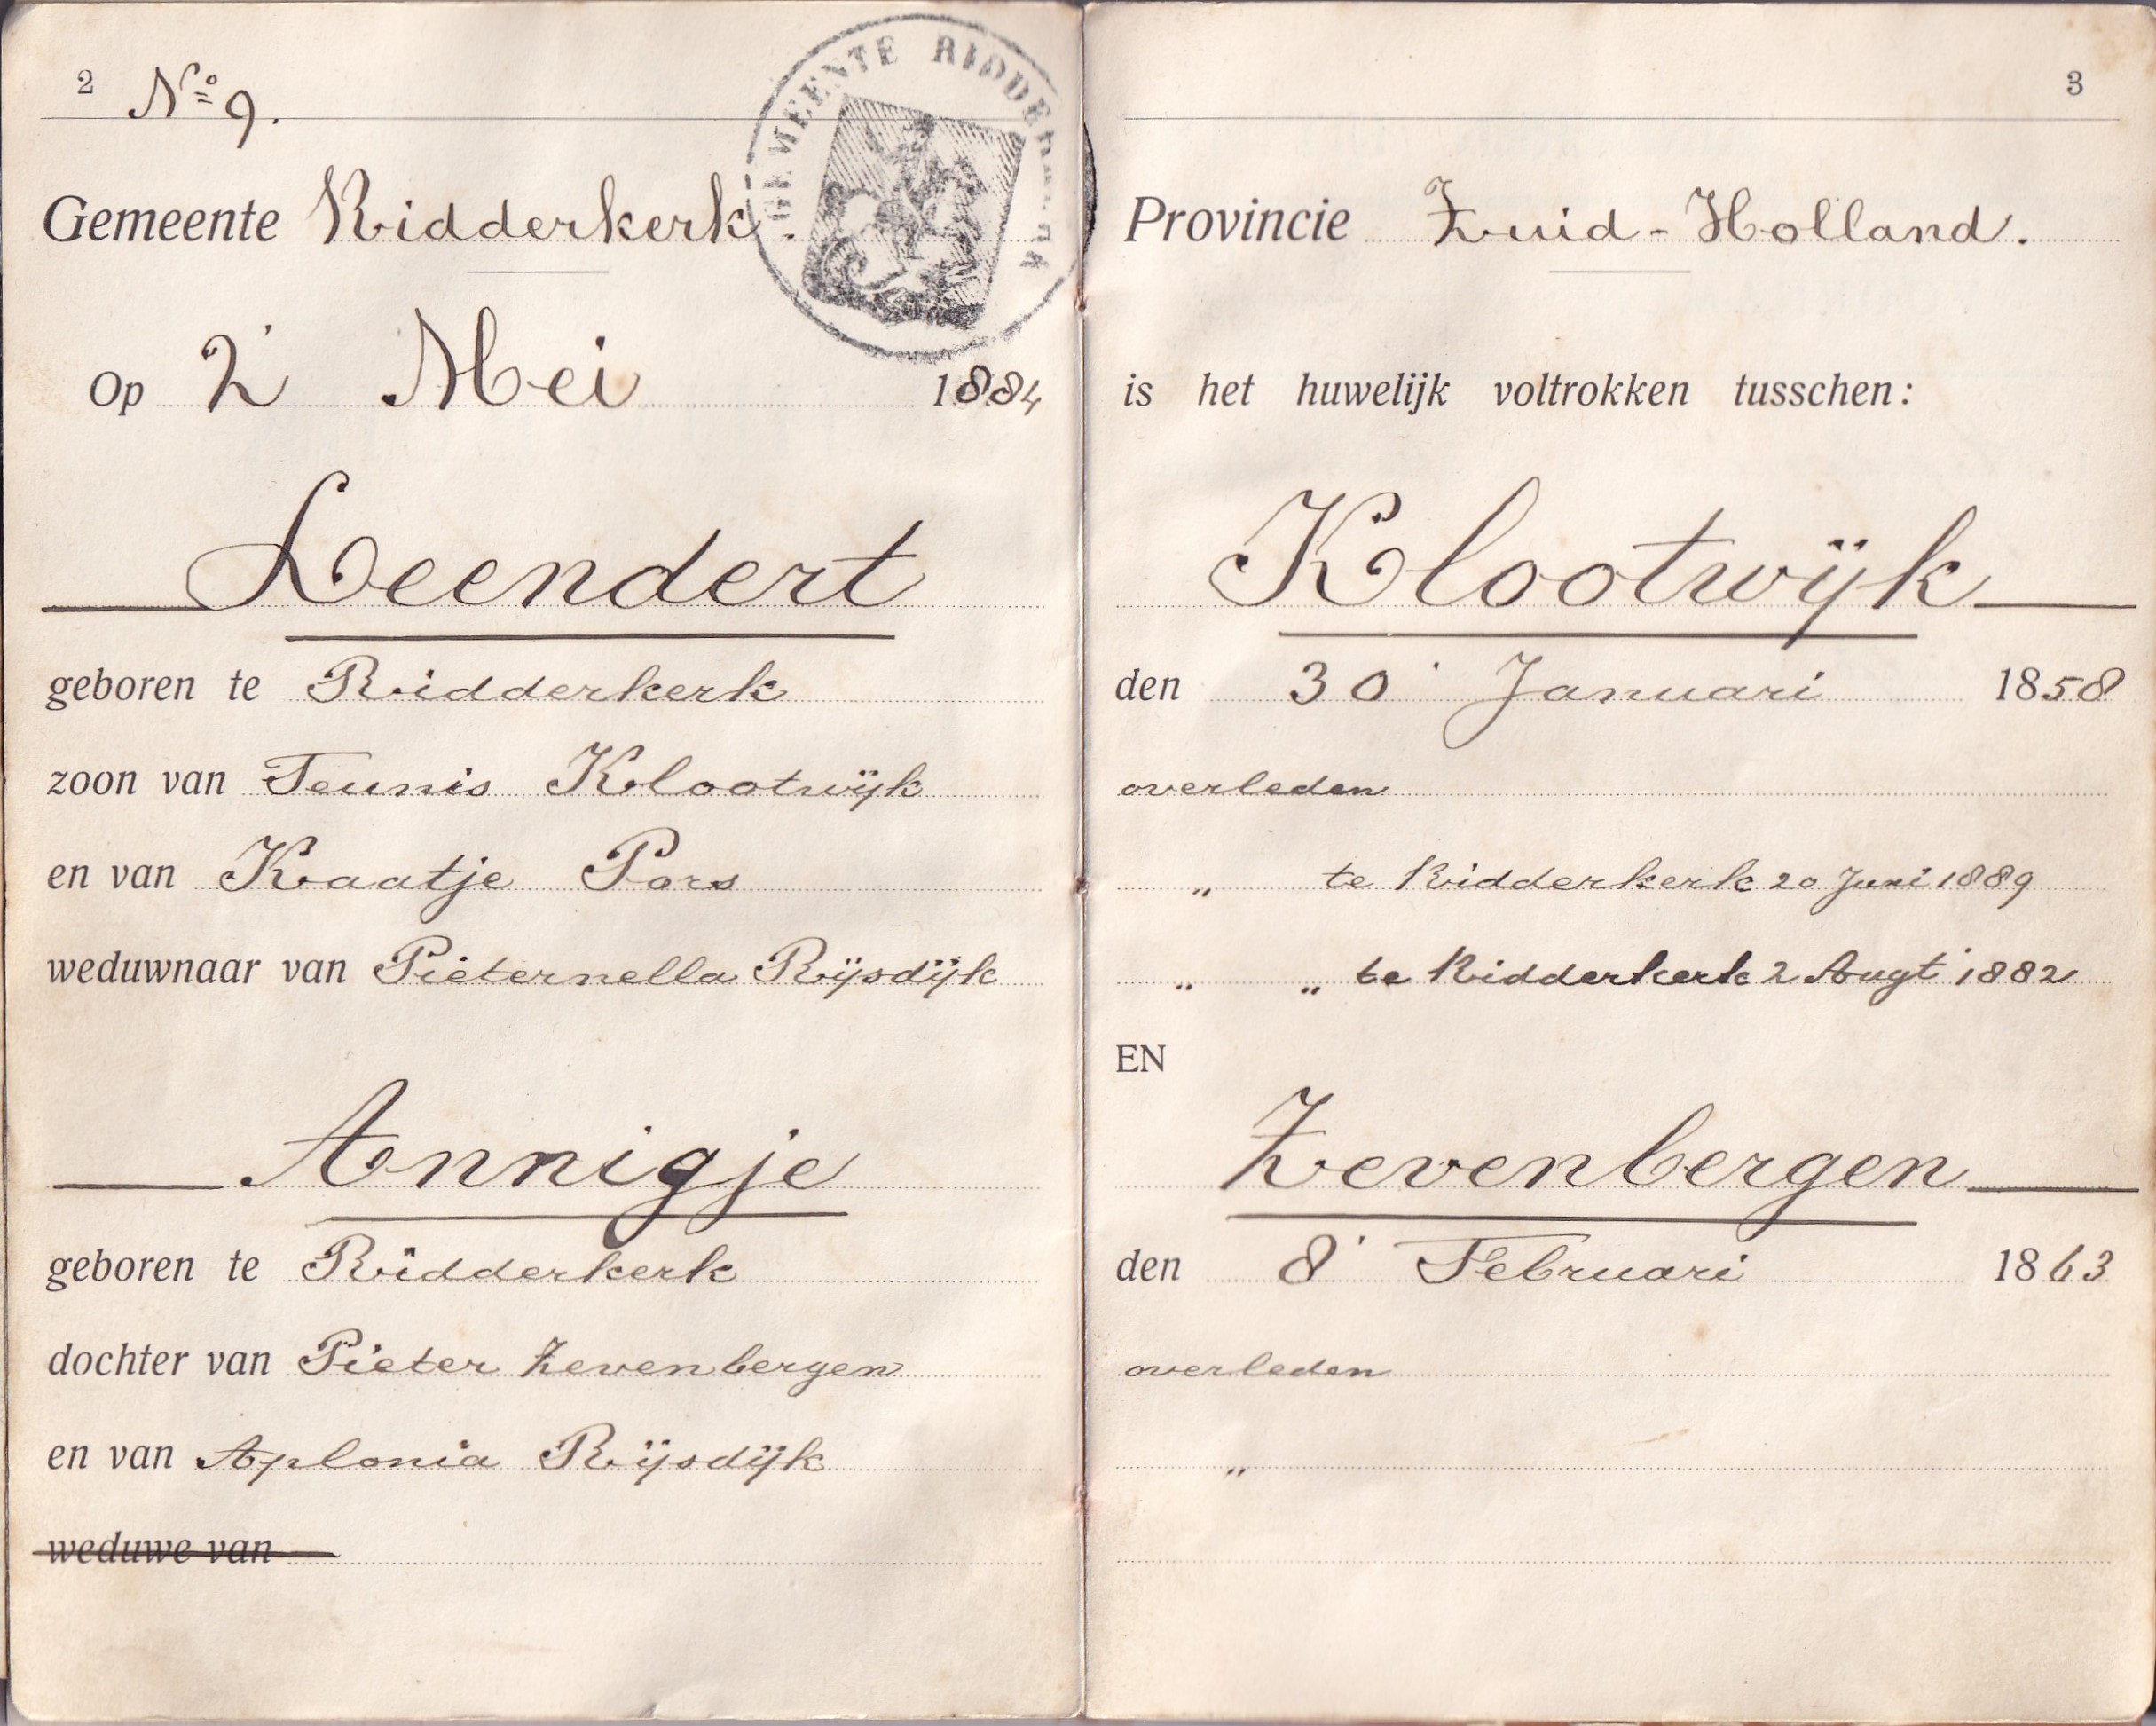 2 No 9.
GEMEENTE RIDDERKERK
Gemeente Ridderkerk.
Op 2 Mei 1884
Leendert
geboren te Ridderkerk
zoon van Teunis Klootwijk
en van Kaatje Pors
weduwnaar van Pieternella Rijsdijk
Annigje
geboren te Ridderkerk
dochter van Pieter Zevenbergen
en van Aplonia Rijsdijk
weduwe van
3
Provincie Zuid-Holland.
is het huwelijk voltrokken tusschen:
Klootwijk
den 30 Januari 1858
overleden
„ te Ridderkerk 20 Juni 1889
„ „ te Ridderkerk 2 Augt 1882
EN
Zevenbergen
den 8 Februari 1863
overleden
„